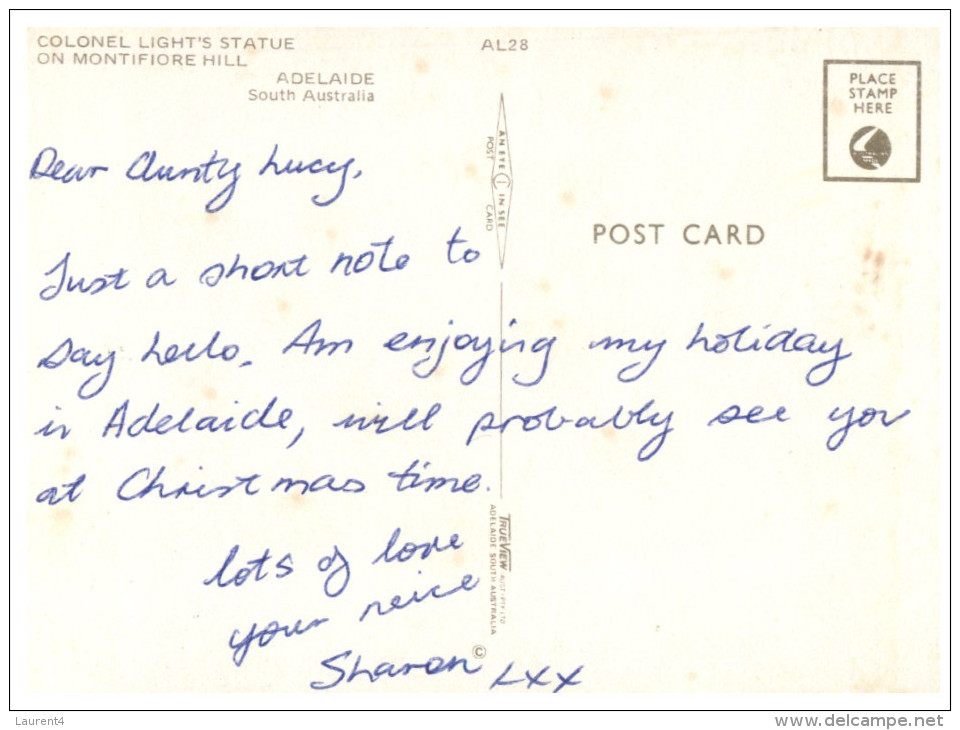 COLONEL LIGHT'S STATUE
ON MONTIFIORE HILL
ADELAIDE
South Australia
AL28
PLACE
STAMP
HERE
AN EYE IN SEE
POST CARD
POST CARD
Dear Aunty Lucy,
Just a short note to
say hello. Am enjoying my holiday
in Adelaide, will probably see you
at Christmas time.
lots of love
your neice
Sharon LXX
TRUEVIEW AUST. PTY. LTD.
ADELAIDE SOUTH AUSTRALIA
©
Laurent4
www.delcampe.net